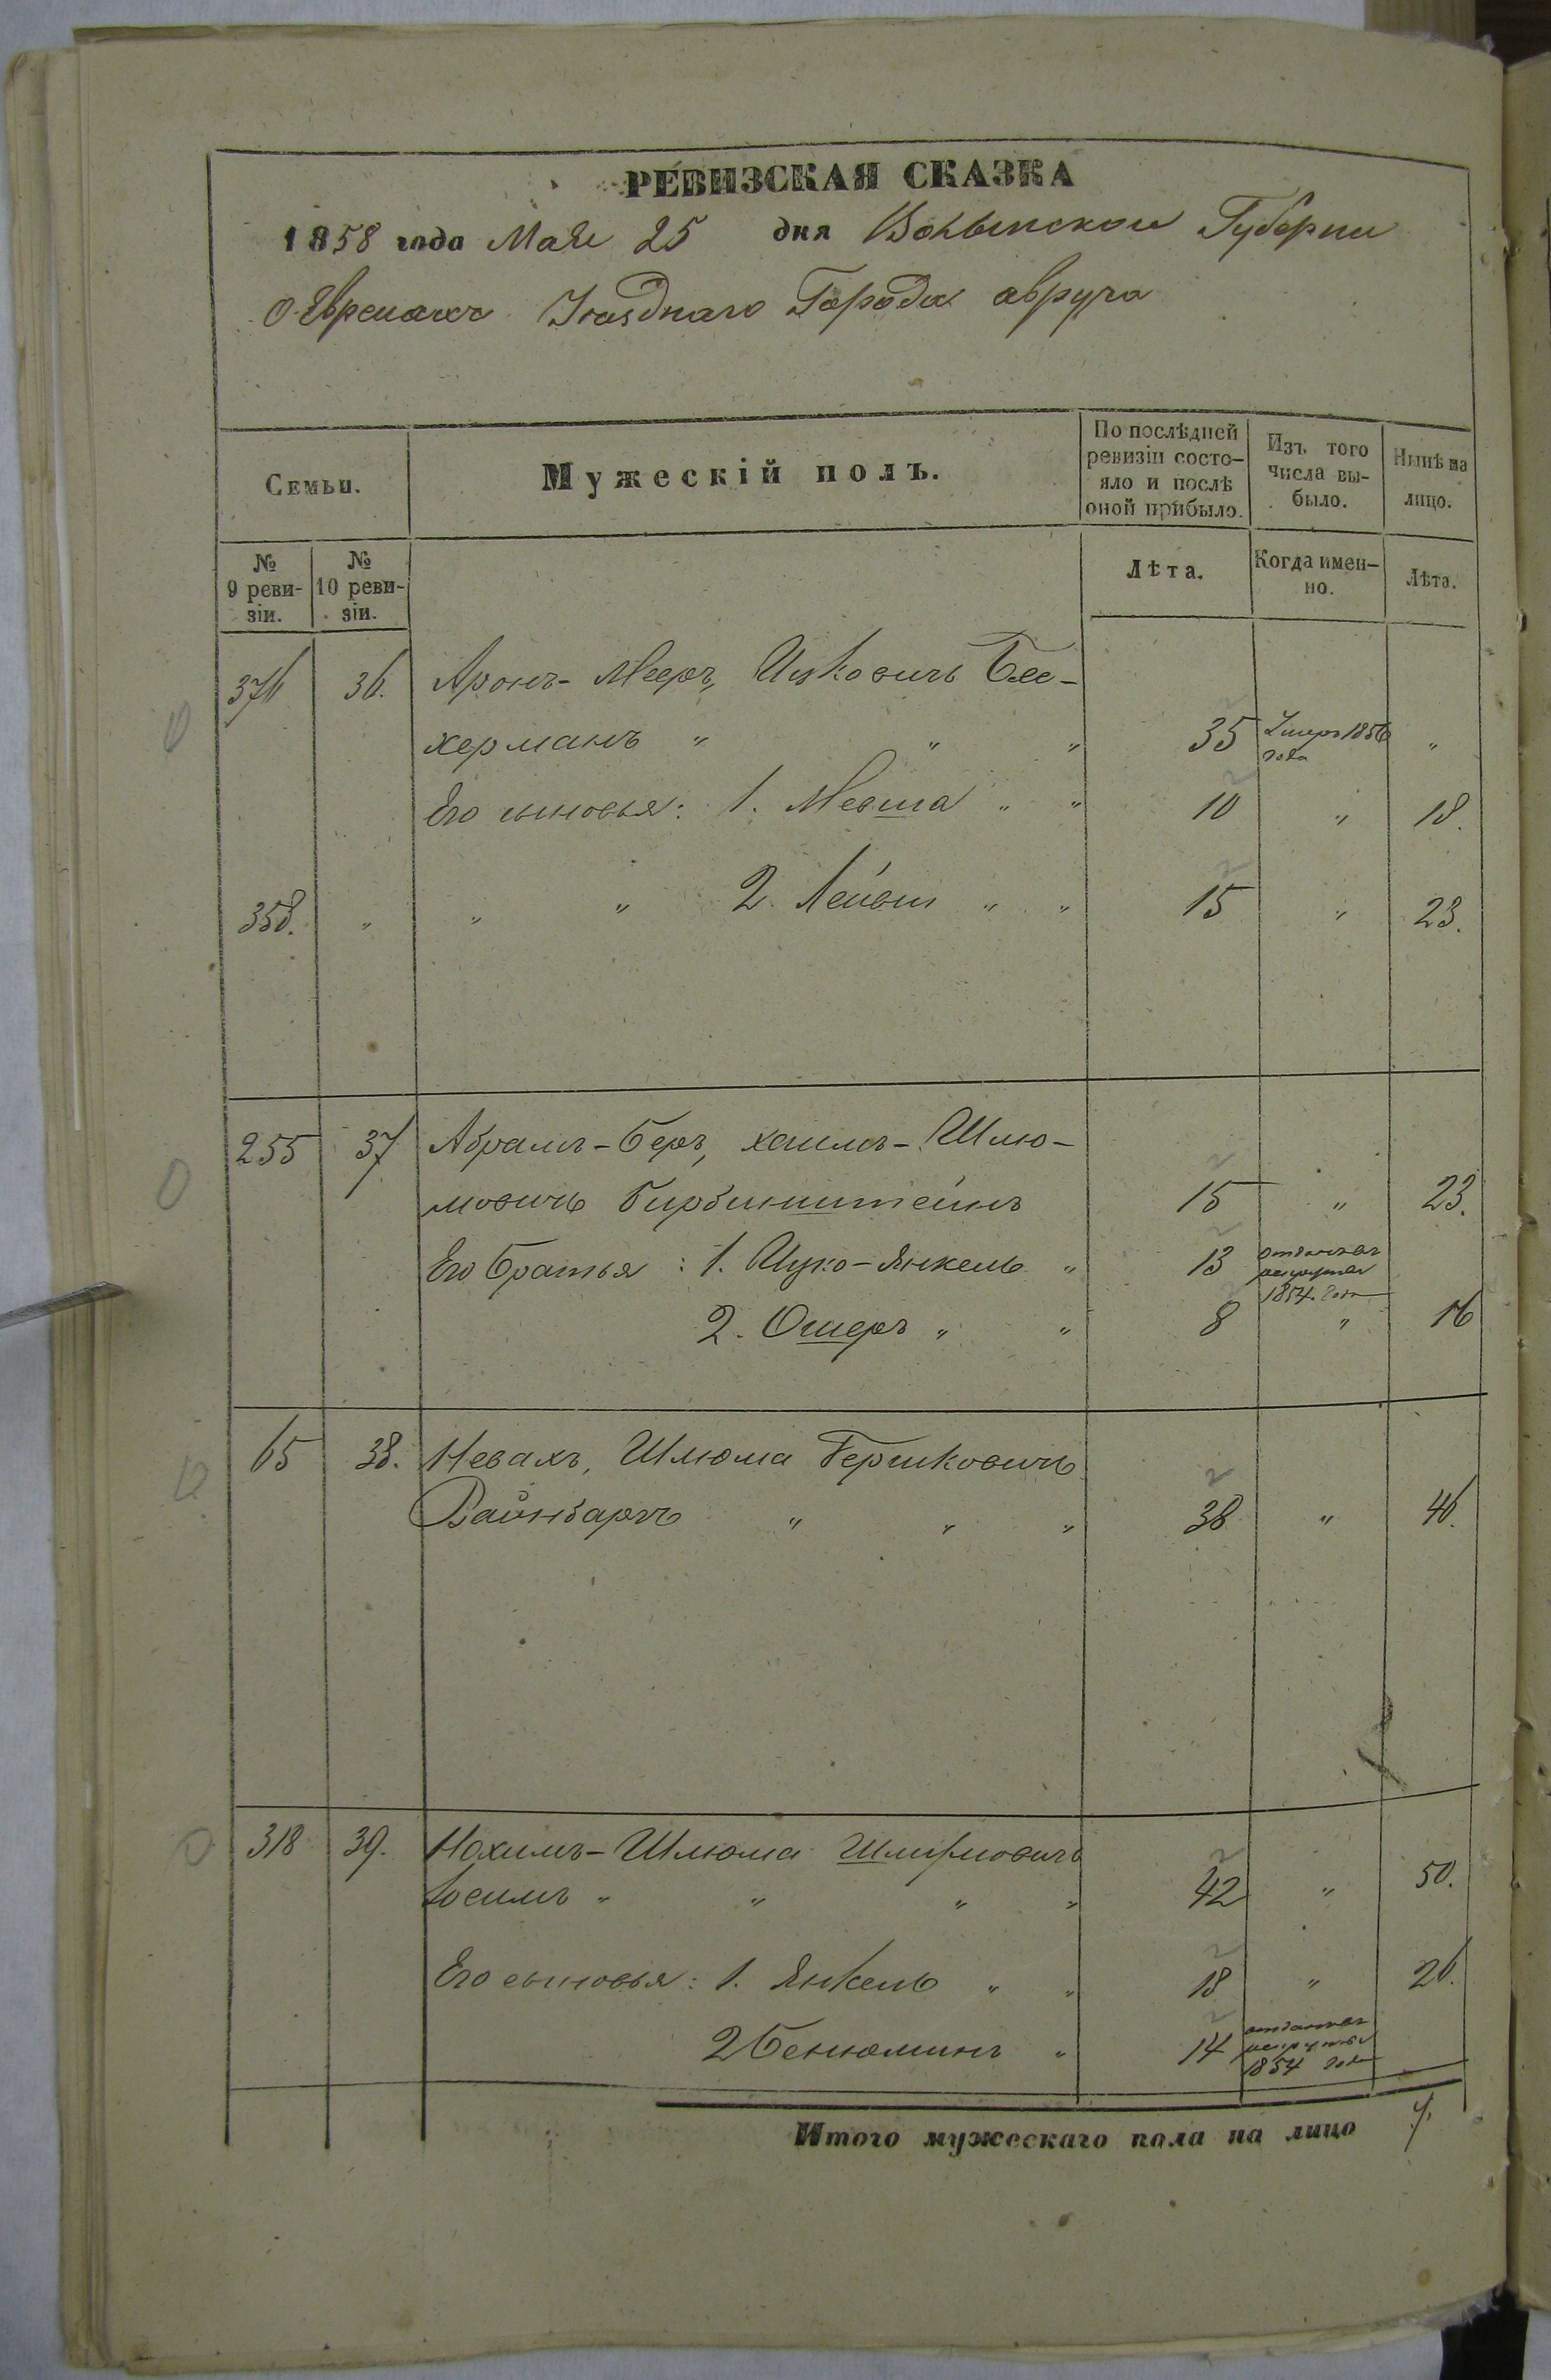 РЕВИЗСКАЯ СКАЗКА
1858 года Мая 25 дня Волынской Губерни
О Евреяхъ Уѣзднаго Города авруча
Семьи.
Мужескій полъ.
По послѣдней ревизіи состо-
яло и послѣ
оной прибыло.
Изъ того
числа вы-
было.
Нынѣ на
лицо.
№ 9 реви-
зіи.
№ 10 реви-
зіи.
Лѣта.
Когда имен-
но.
Лѣта.
376 36. Аронъ-Мееръ, Ицковичъ Бле-
херманъ " " " 35 Умеръ 1856 года "
Его сыновья: 1. Мевша " " 10 " 18.
358. " " " 2. Лейви " " 15 " 23.
255 37 Абрамъ-Беръ, хаимъ-Шлю-
мовичъ Бирбинштейнъ 15 " 23.
Его братья: 1. Ицко-Янкель " 13 отданъ въ рекруты 1854. года
2. Ошеръ " " 8 " 16
65 38. Невахъ, Шлюма Гершковичъ
Вайнбаргъ " " " 38 " 46.
318 39. Нохимъ-Шлюма
" " " 42 " 50.
Его сыновья: 1. Янкель " " 18 " 26.
2 Бенюминъ " 14 1854 года
Итого мужескаго пола на лицо 7.